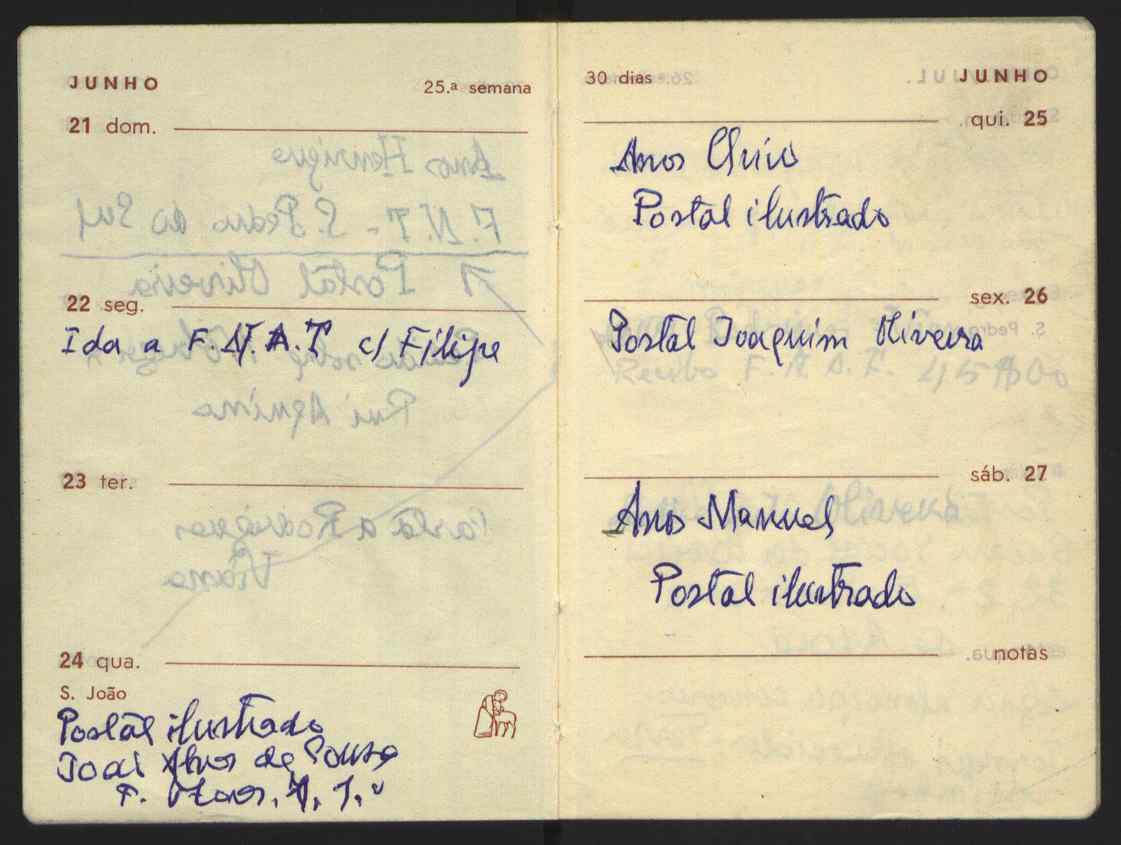 JUNHO
25.ª semana
21 dom.
22 seg.
Ida a F.N.A.T c/ Filipe
23 ter.
24 qua.
S. João
Postal ilustrado
de Sousa
30 dias
JUNHO
qui. 25
Anos
Postal ilustrado
sex. 26
Postal Joaquim Oliveira
sáb. 27
Anos Manuel
Postal ilustrado
notas